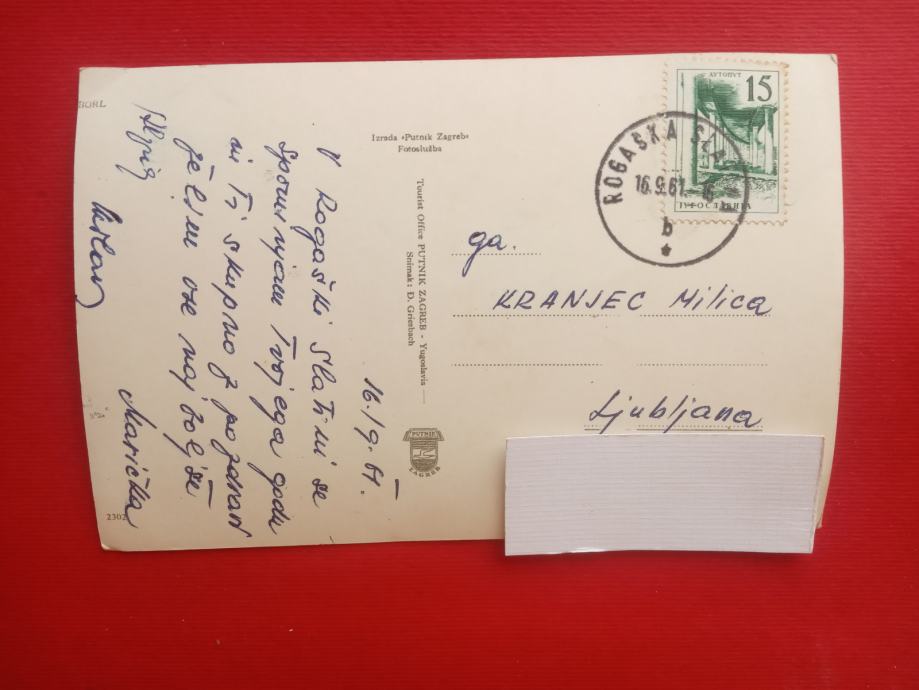 BORL
Izrada »Putnik Zagreb«
Fotoslužba
Tourist Office PUTNIK ZAGREB - Yugoslavia
Snimak: Đ. Griesbach
PUTNIK
ZAGREB
2302
16./9.61.
V Rogaški Slatini se
spominjam Tvojega godu
ni Ti skupno z pozdravi
želim vse najboljše
Marička
АУТОПУТ
15
ЈУГОСЛАВИЈА
ROGAŠKA SLA
16.9.61.-16
b
ga.
KRANJEC Milica
Ljubljana